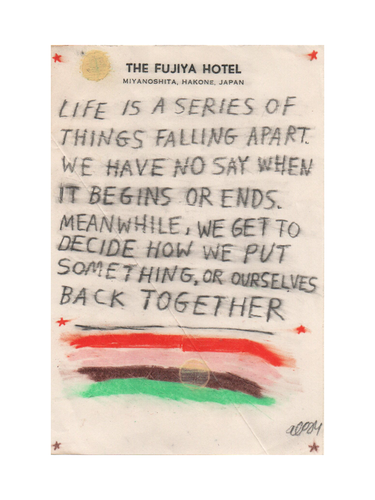 THE FUJIYA HOTEL
MIYANOSHITA, HAKONE, JAPAN
LIFE IS A SERIES OF
THINGS FALLING APART.
WE HAVE NO SAY WHEN
IT BEGINS OR ENDS.
MEANWHILE, WE GET TO
DECIDE HOW WE PUT
SOMETHING, OR OURSELVES
BACK TOGETHER